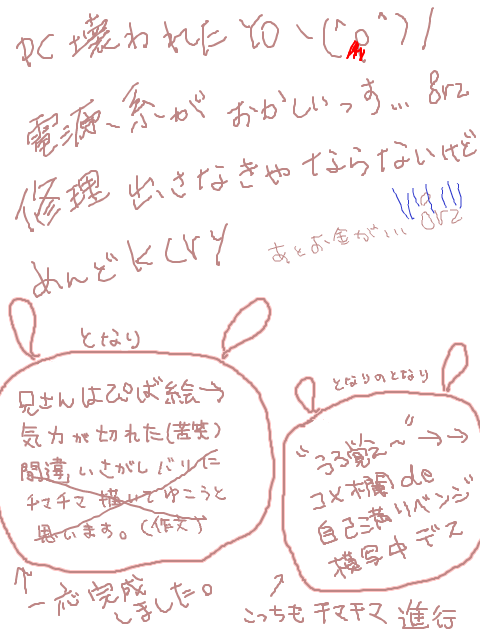 PC壊われたYO ヽ(´o`)ノ
電源系がおかしいっす... orz
修理出さなきゃならないけど
めんどkcry
あとお金が... orz
となり
兄さんはぴば絵→
気力が切れた(苦笑)
間違いさがしバリに
チマチマ描いてゆこうと
思います。(作文)
↑
一応完成
しました。
となりのとなり
"うろ覚え〜" →→
コメ欄de
自己満リベンジ
模写中デス
↗
こっちもチマチマ進行